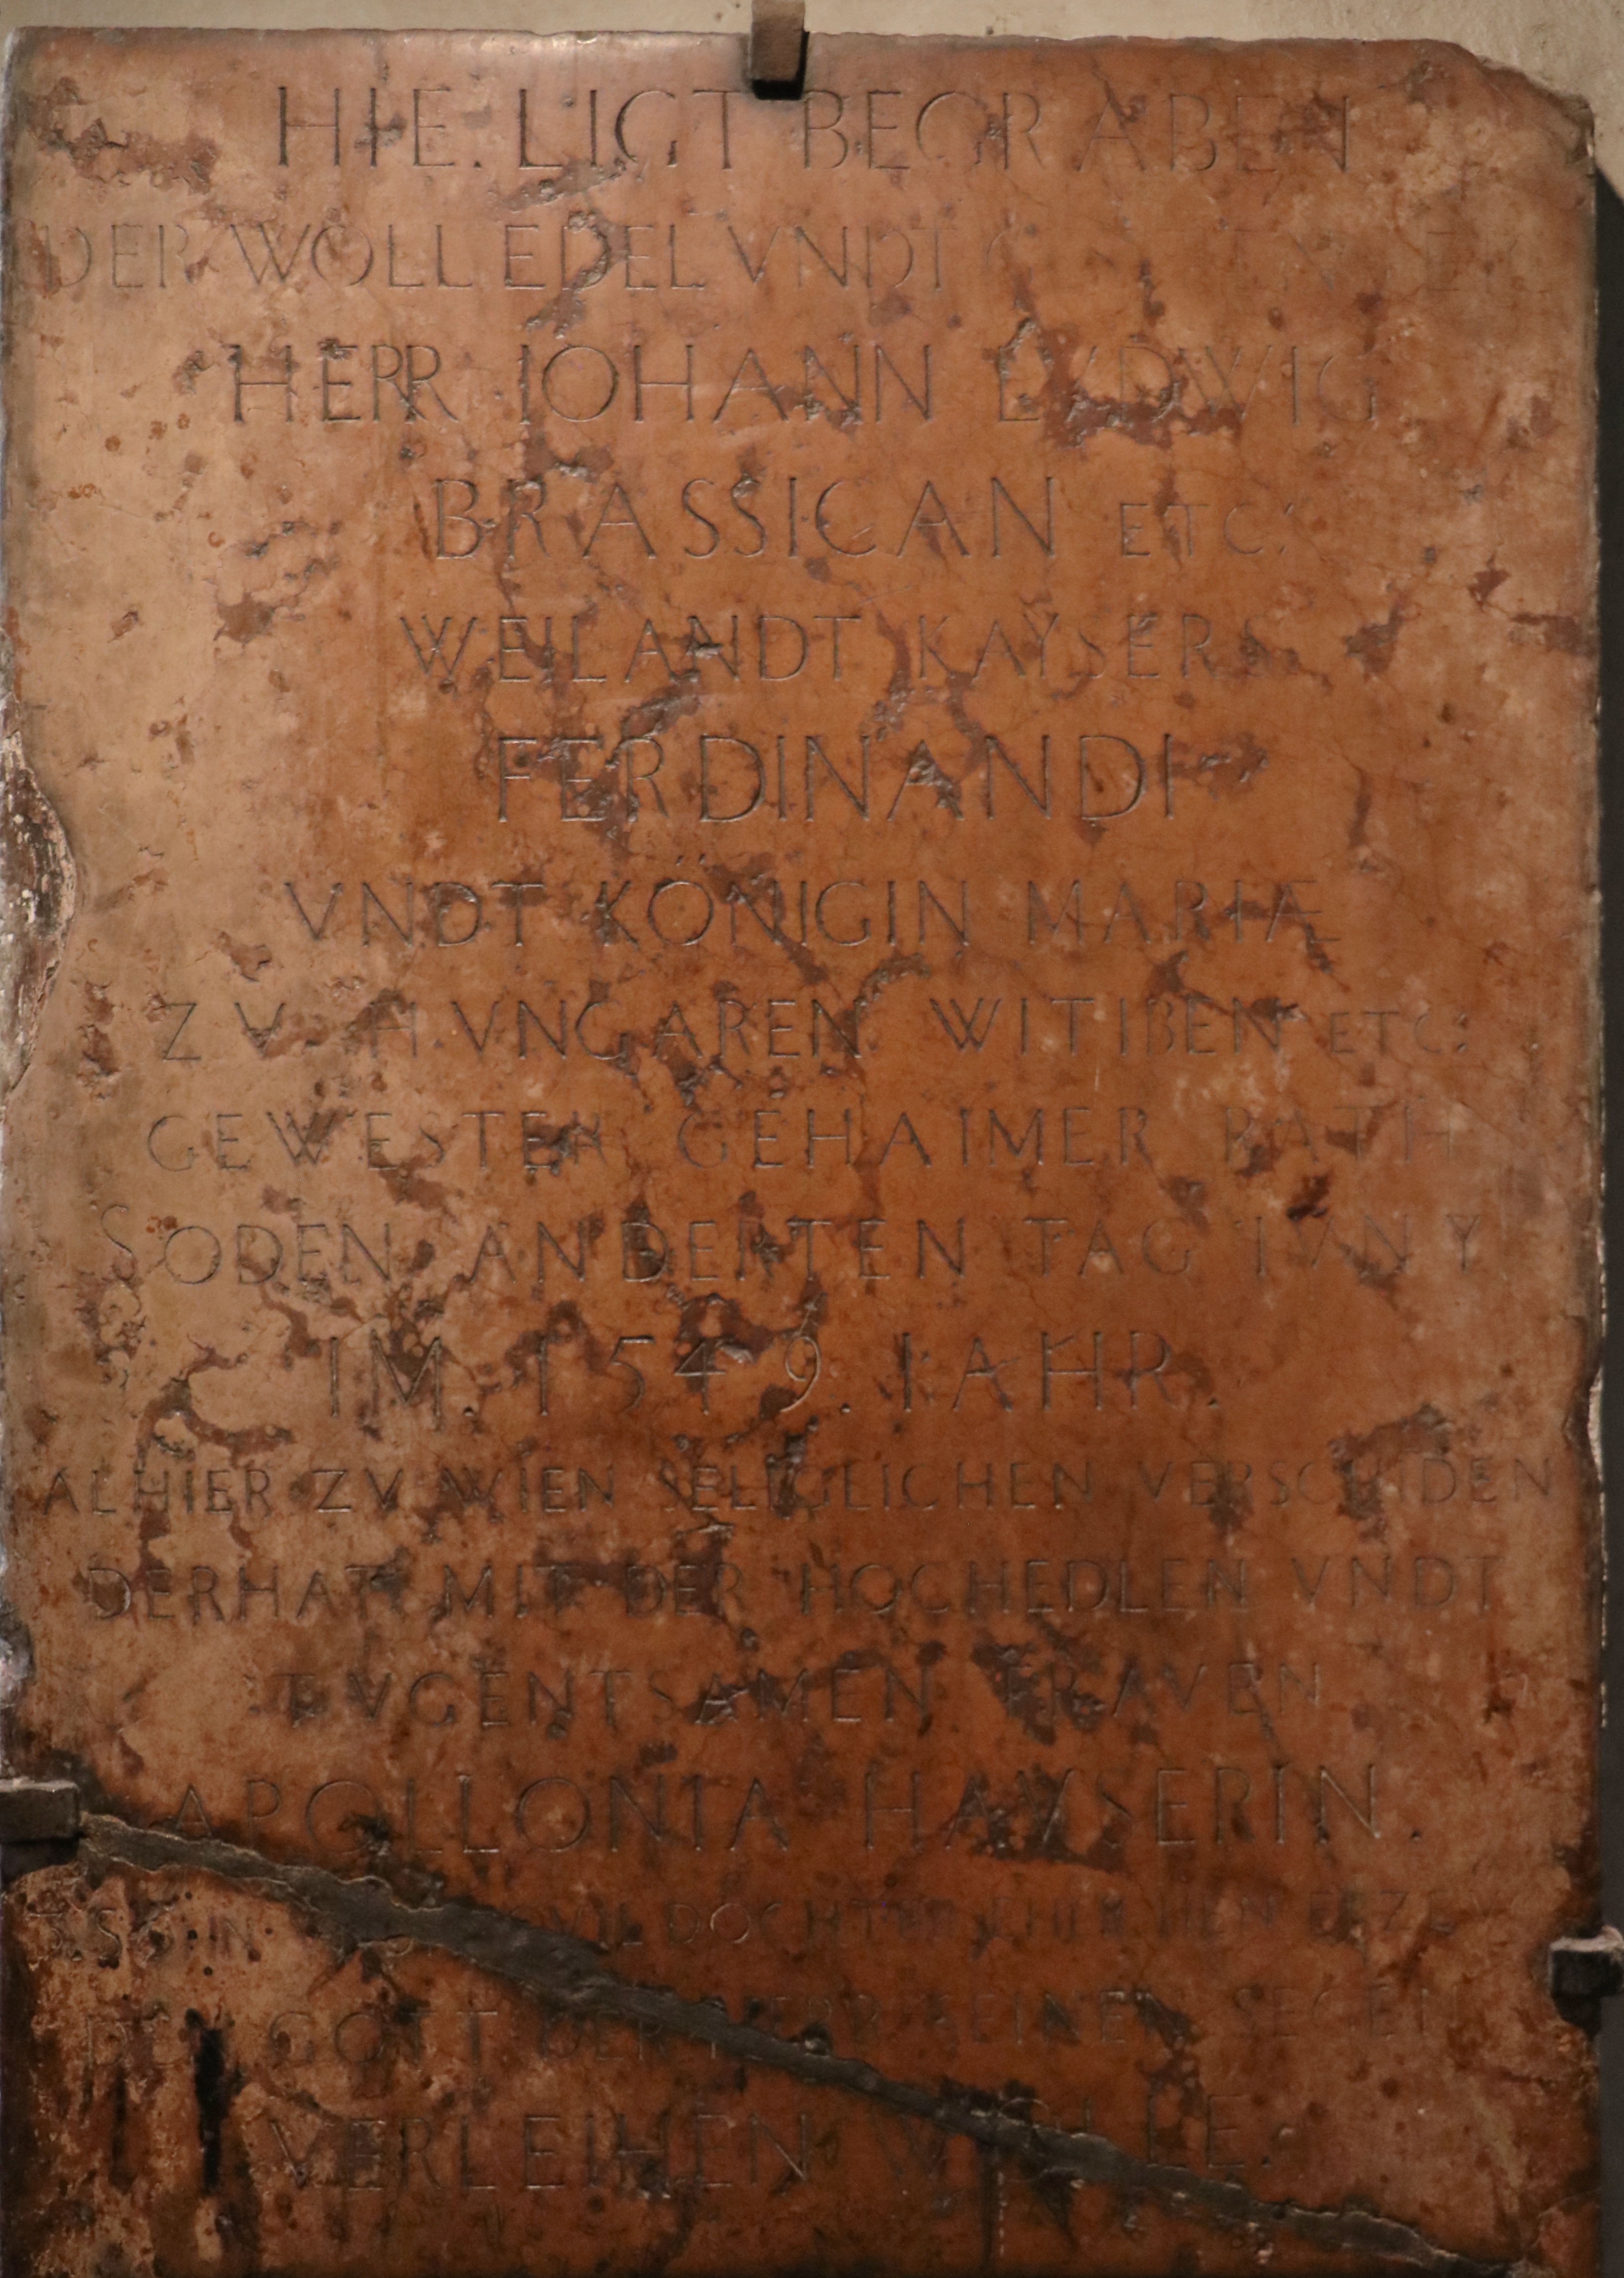 HIE. LIGT BEGRABEN
DER WOLL EDEL VNDT
HERR IOHANN LVDWIG
BRASSICAN ETC:
WEILANDT KAYSERS
FERDINANDI
VNDT KÖNIGIN MARIÆ
ZV HVNGAREN WITIBEN ETC:
GEWESTER GEHAIMER RATH
SODEN ANDERTEN TAG IVNY
IM. 1549. IAHR.
ALHIER ZV WIEN SELIGLICHEN VERSCHIDEN
DERHAT MIT DER HOCHEDLEN VNDT
TVGENTSAMEN FRAVEN
APOLLONIA HAVSERIN.
DOCHTER
GOTT SEINEN SEGEN
VERLEIHEN WOLLE.